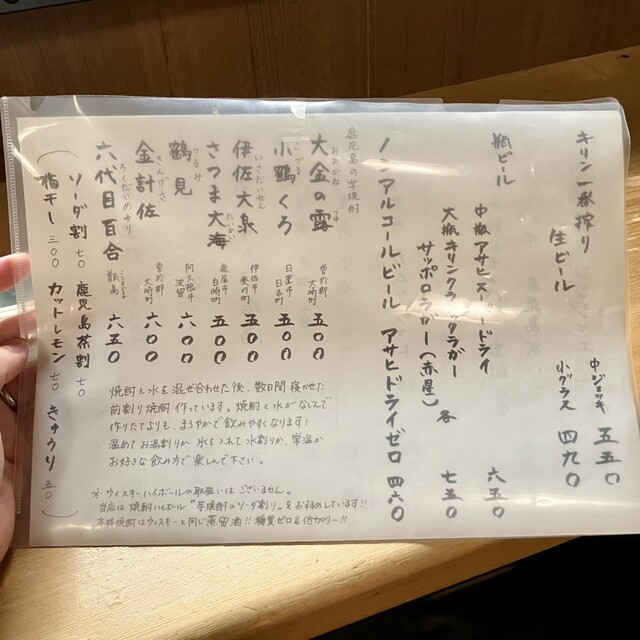 キリン一番搾り
生ビール
中ジョッキ 五五〇
小グラス 四九〇
瓶ビール
中瓶アサヒスーパードライ 六五〇
大瓶キリンクラシックラガー
サッポロラガー(赤星) 各 七五〇
ノンアルコールビール アサヒドライゼロ 四六〇
鹿児島の芋焼酎
大金の露 おおがねのつゆ 曽於郡 大崎町 五〇〇
小鶴くろ こづる 日置市 日吉町 五〇〇
伊佐大泉 いさだいせん 伊佐市 菱刈町 五〇〇
さつま大海 たいかい 鹿屋市 白崎町 五〇〇
鶴見 つるみ 阿久根市 波留 六〇〇
金計佐 きんけいさ 曽於郡 大崎町 六〇〇
六代目百合 ろくだいめゆり 甑島 六五〇
ソーダ割 七〇 鹿児島茶割 七〇
梅干し 三〇〇 カットレモン 七〇 きゅうり 五〇
焼酎と水を混ぜ合わせた後、数日間寝かせた
前割り焼酎作っています。焼酎と水がなじんで
作りたてよりも、まろやかで飲みやすくなります!
温めてお湯割りか氷を入れて水割りか、常温か
お好きな飲み方で楽しんで下さい。
※ウィスキーハイボールの取扱いはございません。
当店は焼酎ハイボール"芋焼酎のソーダ割り"をおすすめしています!!
本格焼酎はウィスキーと同じ蒸留酒!!糖質ゼロ&低カロリー!!